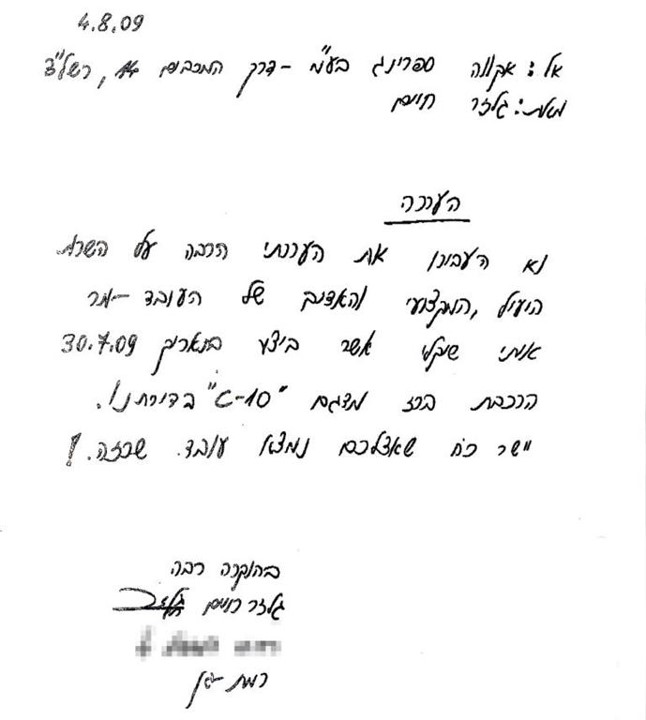 4.8.09
אל: אקווה ספרינג בע"מ - דרך המכבים 14, רשל"צ
מאת: גלזר חיים
הערכה
נא העבירו את הערכתי הרבה על השרות
היעיל, המקצועי והאדיב של העובד - מר
אותי שקלי אשר ביצע בתאריך 30.7.09
הרכבת ברז מדגם "C-10" בדירתנו.
יישר כח שאצלכם נמצא עובד שכזה.!
בהוקרה רבה
גלזר חיים
רמת-גן